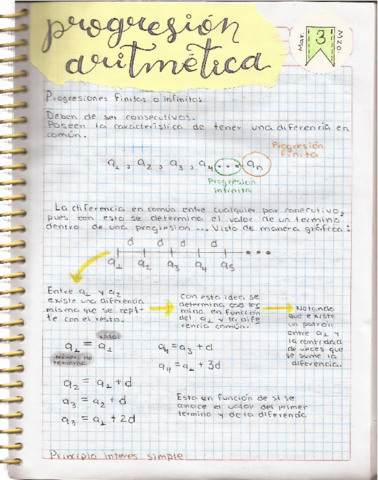 progresión
aritmética
Mar. 3 Mzo.
Progresiones Finitas o infinitas.
Deben de ser consecutivos.
Poseen la característica de tener una diferencia en
común.
Progresión
Finita
a₁, a₂, a₃, a₄ ... aₙ
Progresión
infinita
La diferencia en común entre cualquier par consecutivo,
pues con esto se determina el valor de un término
dentro de una progresión... Visto de manera gráfica:
d d d d
a₁ a₂ a₃ a₄ a₅ ...
Entre a₁ y a₂
existe una diferencia
misma que se repi-
te con el resto.
Con esta idea, se
determina ese tér
mino en función
del a₁ y la dife
rencia común.
Notando
que existe
un patrón
entre a₁ y
la cantidad
de veces que
se sume la
diferencia.
valor
a₁ = a₁
número de
término
a₂ = a₁ + d
a₃ = a₂ + d
a₃ = a₁ + 2d
a₄ = a₃ + d
a₄ = a₁ + 3d
Esto en función de si se
conoce el valor del primer
término y de la diferencia
Principio interés simple